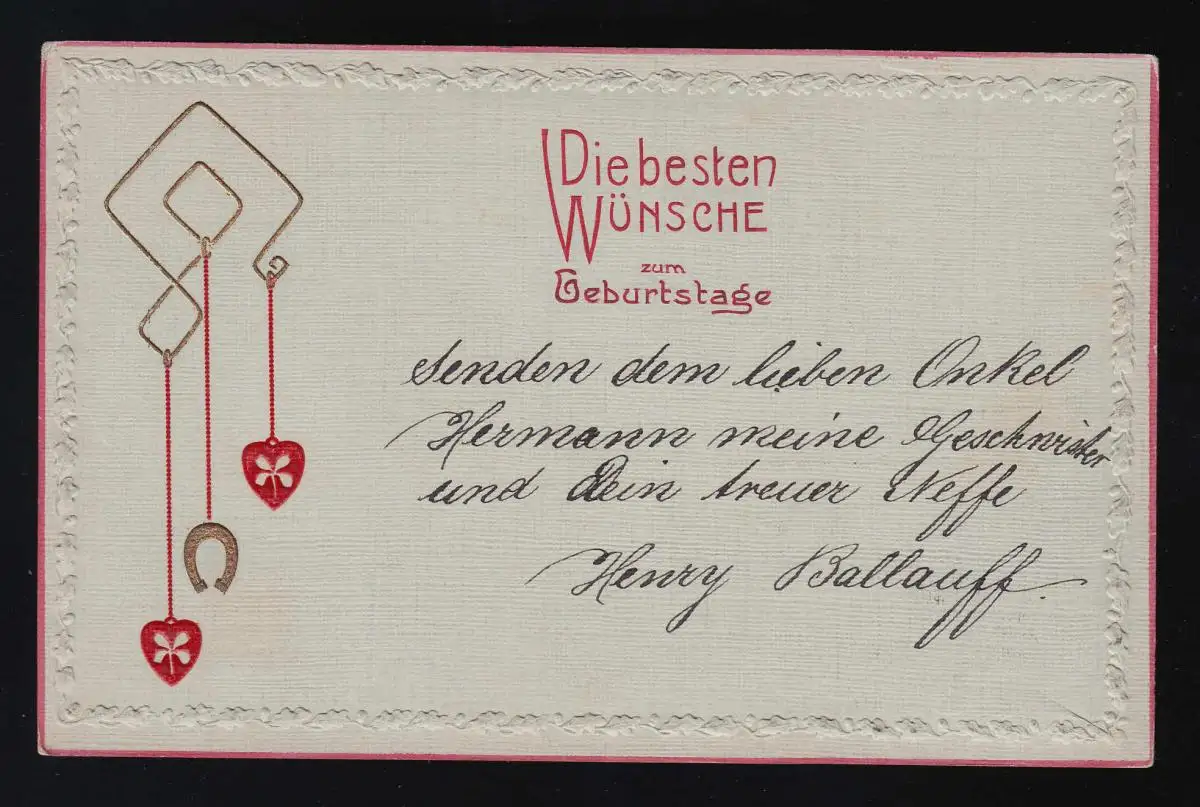 Die besten
WÜNSCHE
zum
Geburtstage
senden dem lieben Onkel
Hermann meine Geschwister
und Dein treuer Neffe
Henry Ballauff.